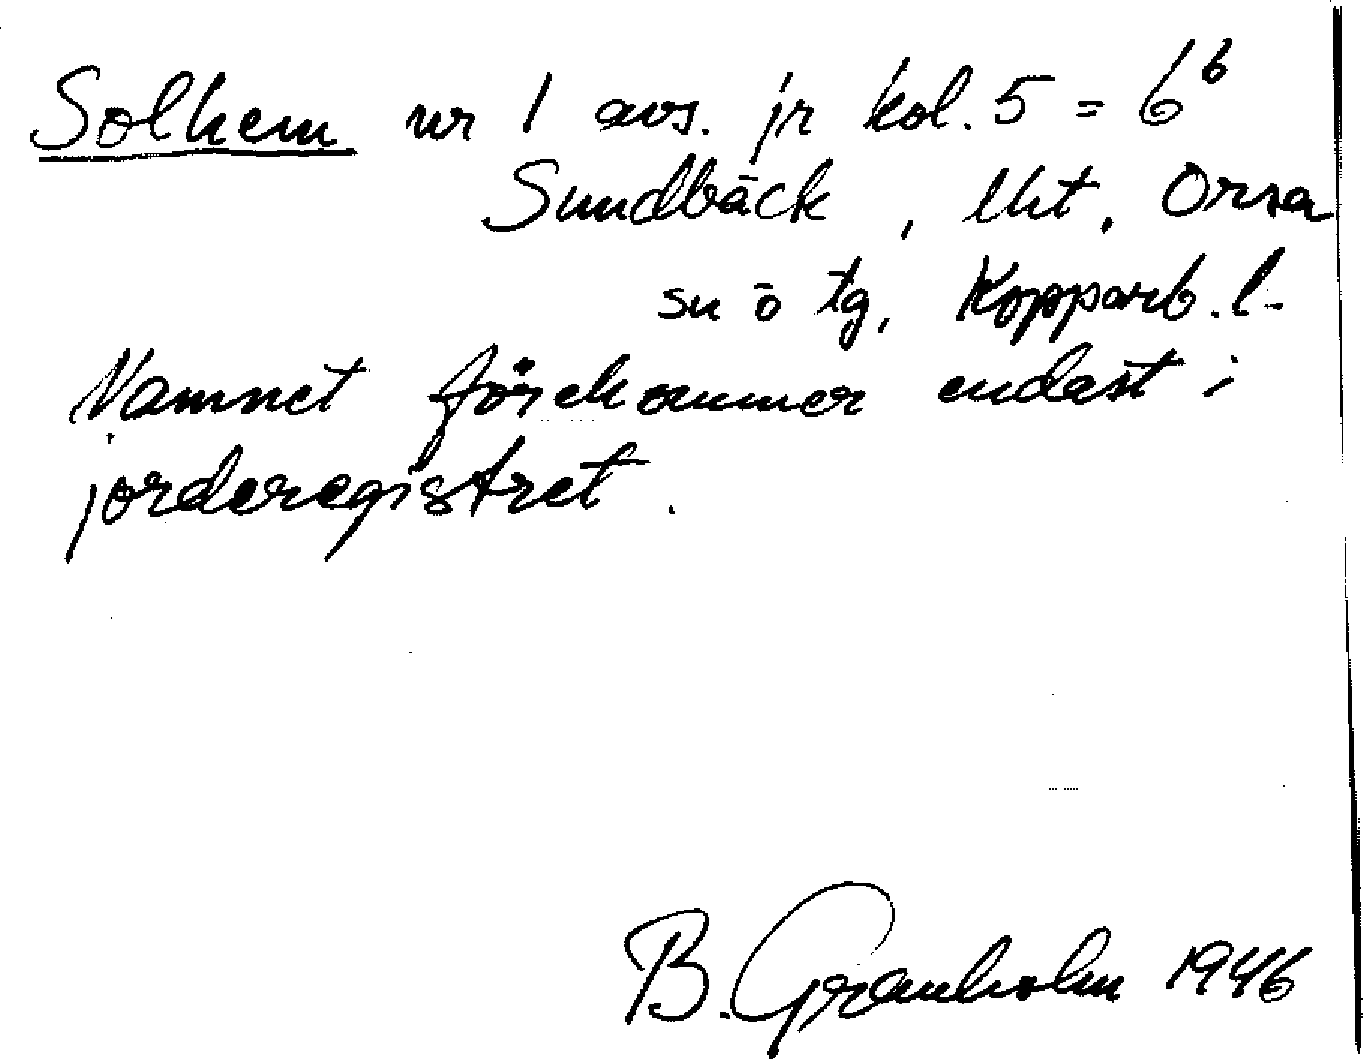 Solhem nr 1 avs. jr kol. 5 = 6⁶
Sundbäck, lht, Orsa
sn o tg, Kopparb. l.
Namnet förekommer endast i
jorderegistret.
B. Granholm 1946